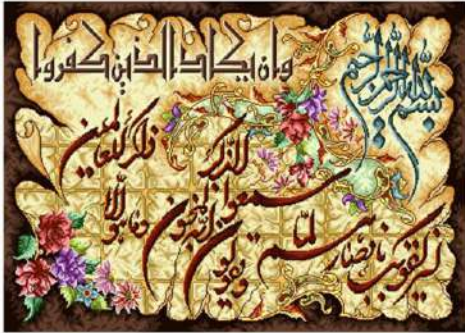 بسم الله الرحمن الرحيم
وان يكاد الذين كفروا
ليزلقونك بابصارهم لما
سمعوا الذكر
ويقولون انه لمجنون
وما هو الا
ذكر للعالمين